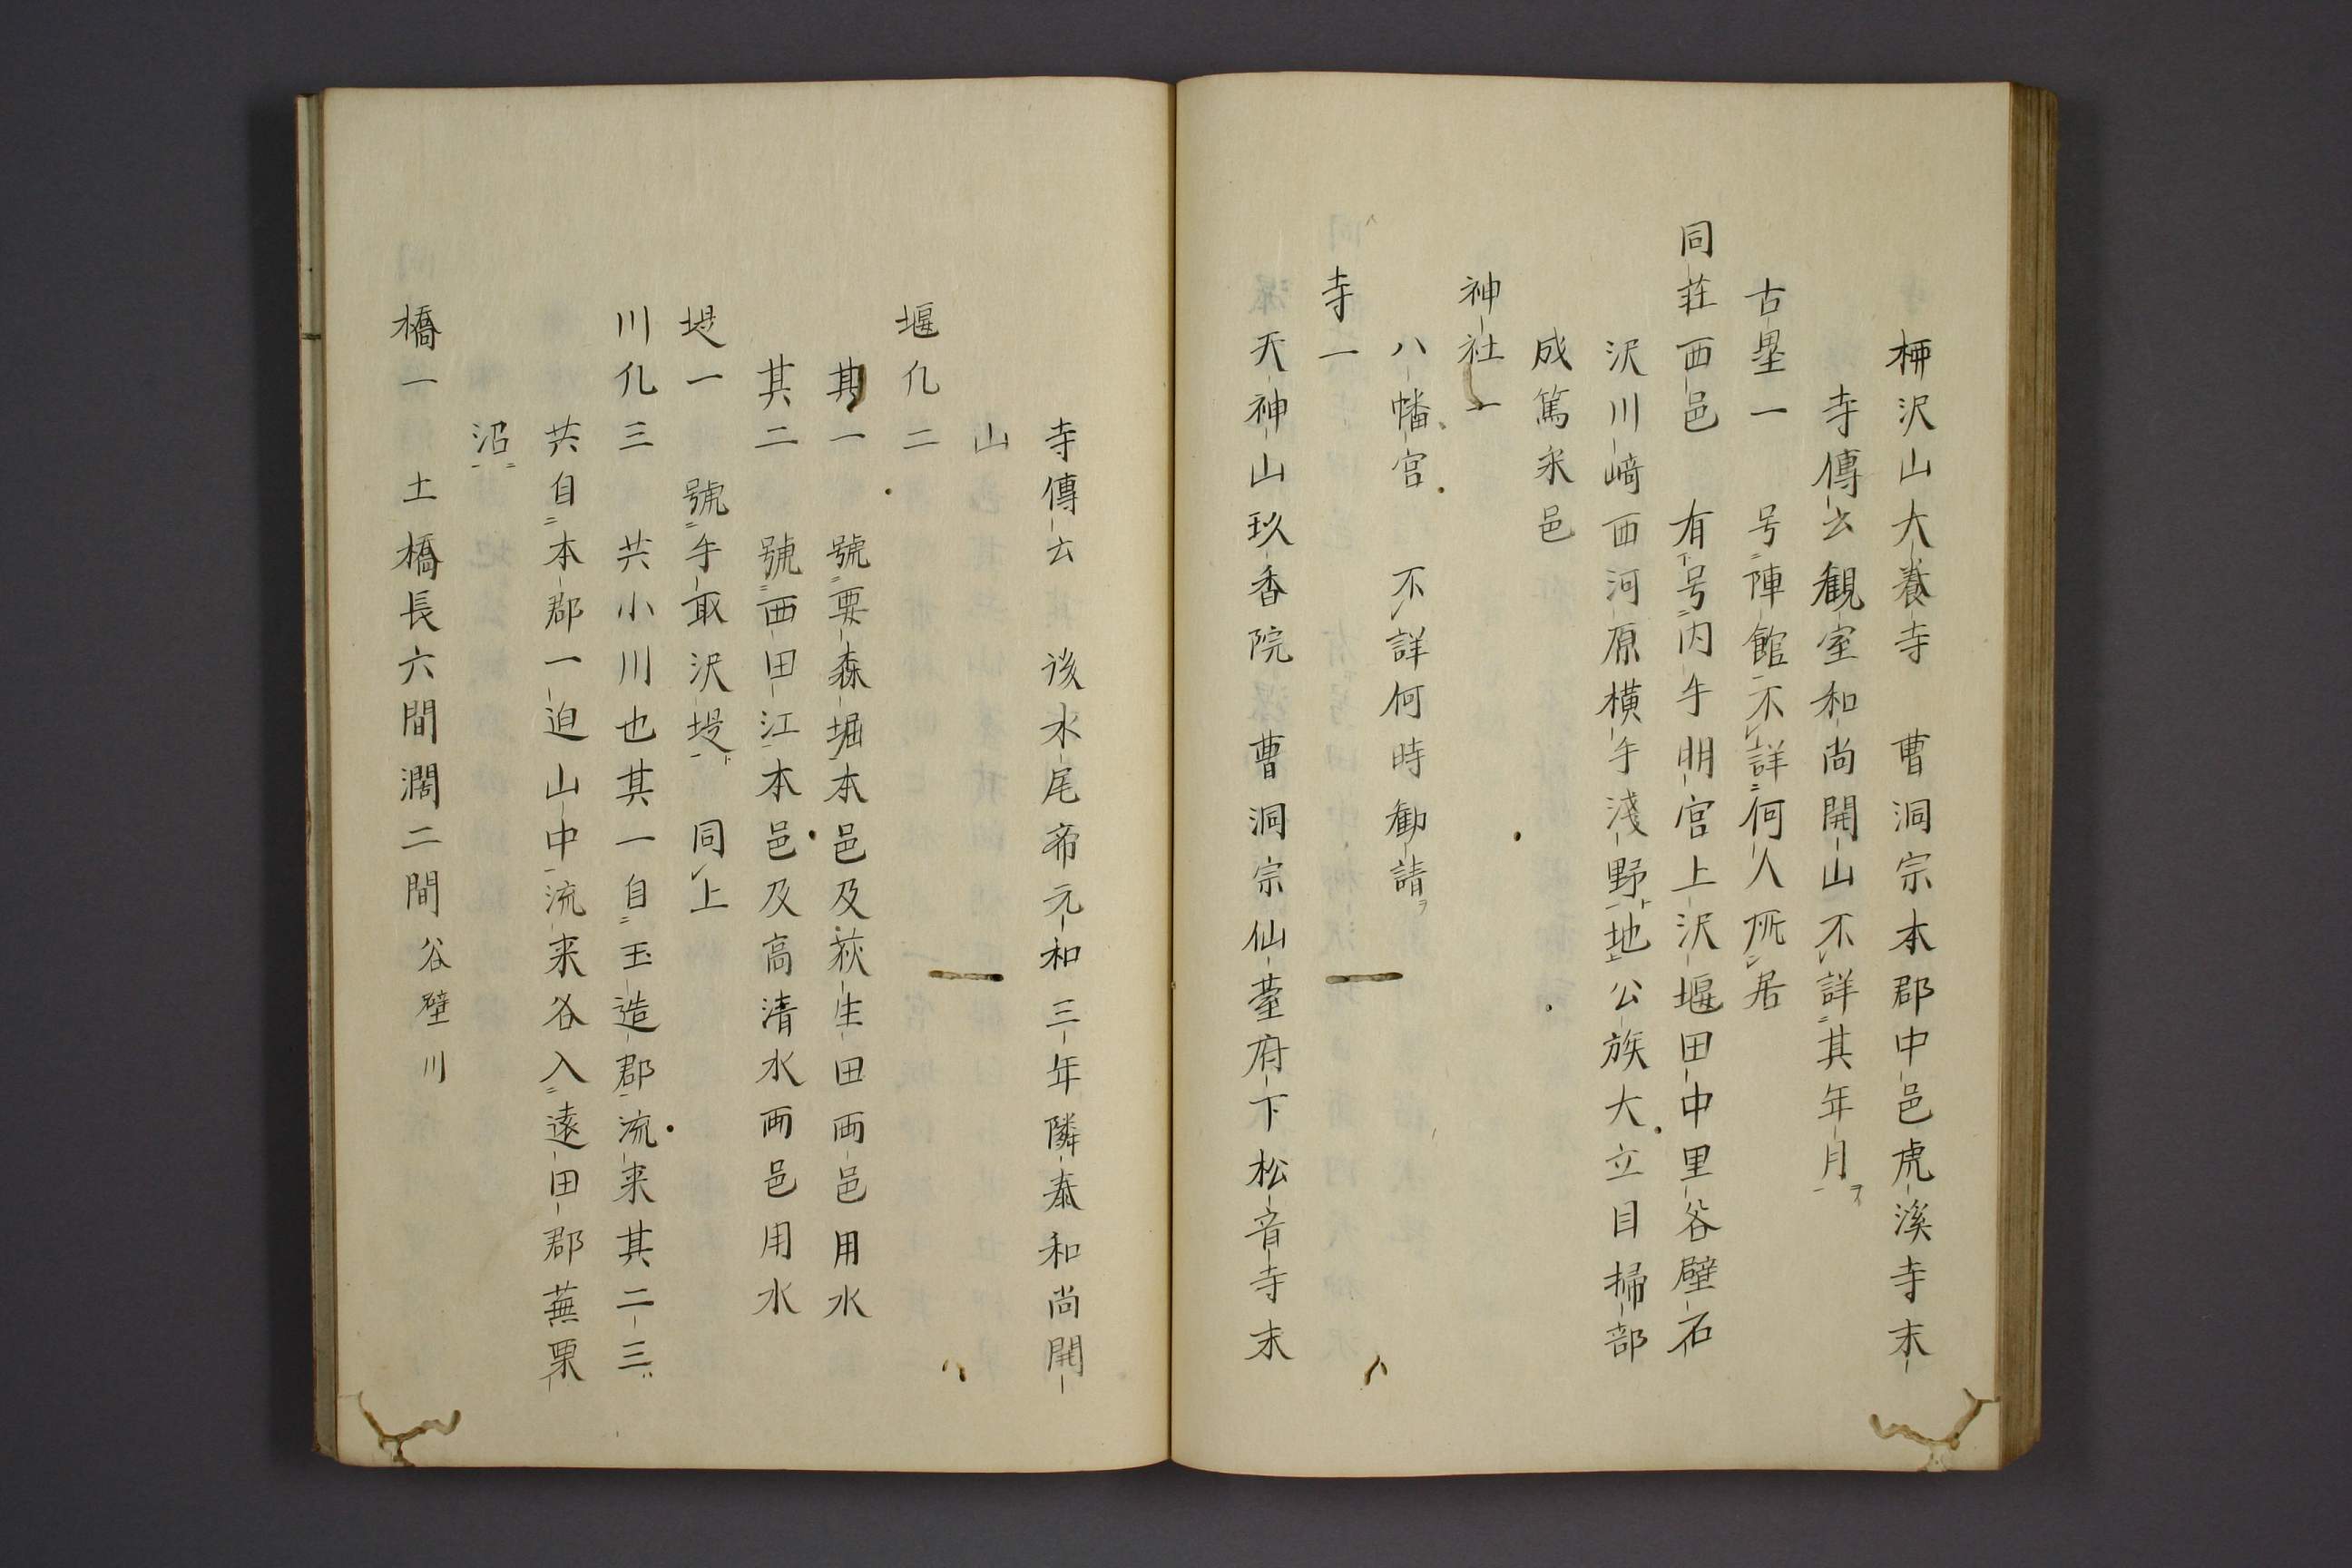 栁沢山大養寺　曹洞宗本郡中邑虎溪寺末
寺傳云観室和尚開山不詳其年月
古壘一　号陣館不詳何人所居
同荘西邑　有号内手明宮上沢堰田中里谷壁石
沢川﨑西河原横手淺野地公族大立目掃部
成篤采邑
神社一
八幡宮　不詳何時勧請
寺一
天神山玖香院　曹洞宗仙䑓府下松音寺末
寺傳云　後水尾帝元和三年隣泰和尚開
山
堰凢二
其一　號要森堀本邑及荻生田両邑用水
其二　號西田江本邑及高清水両邑用水
堤一　號手取沢堤　同上
川凢三　共小川也其一自玉造郡流来其二三
共自本郡一迫山中流来各入遠田郡蕪栗
沼
橋一　土橋長六間濶二間　谷壁川